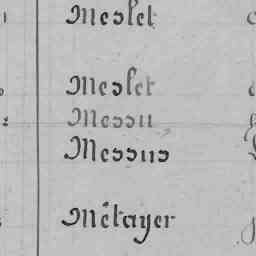 Meslet
Meslet
Messu
Messus
Métayer